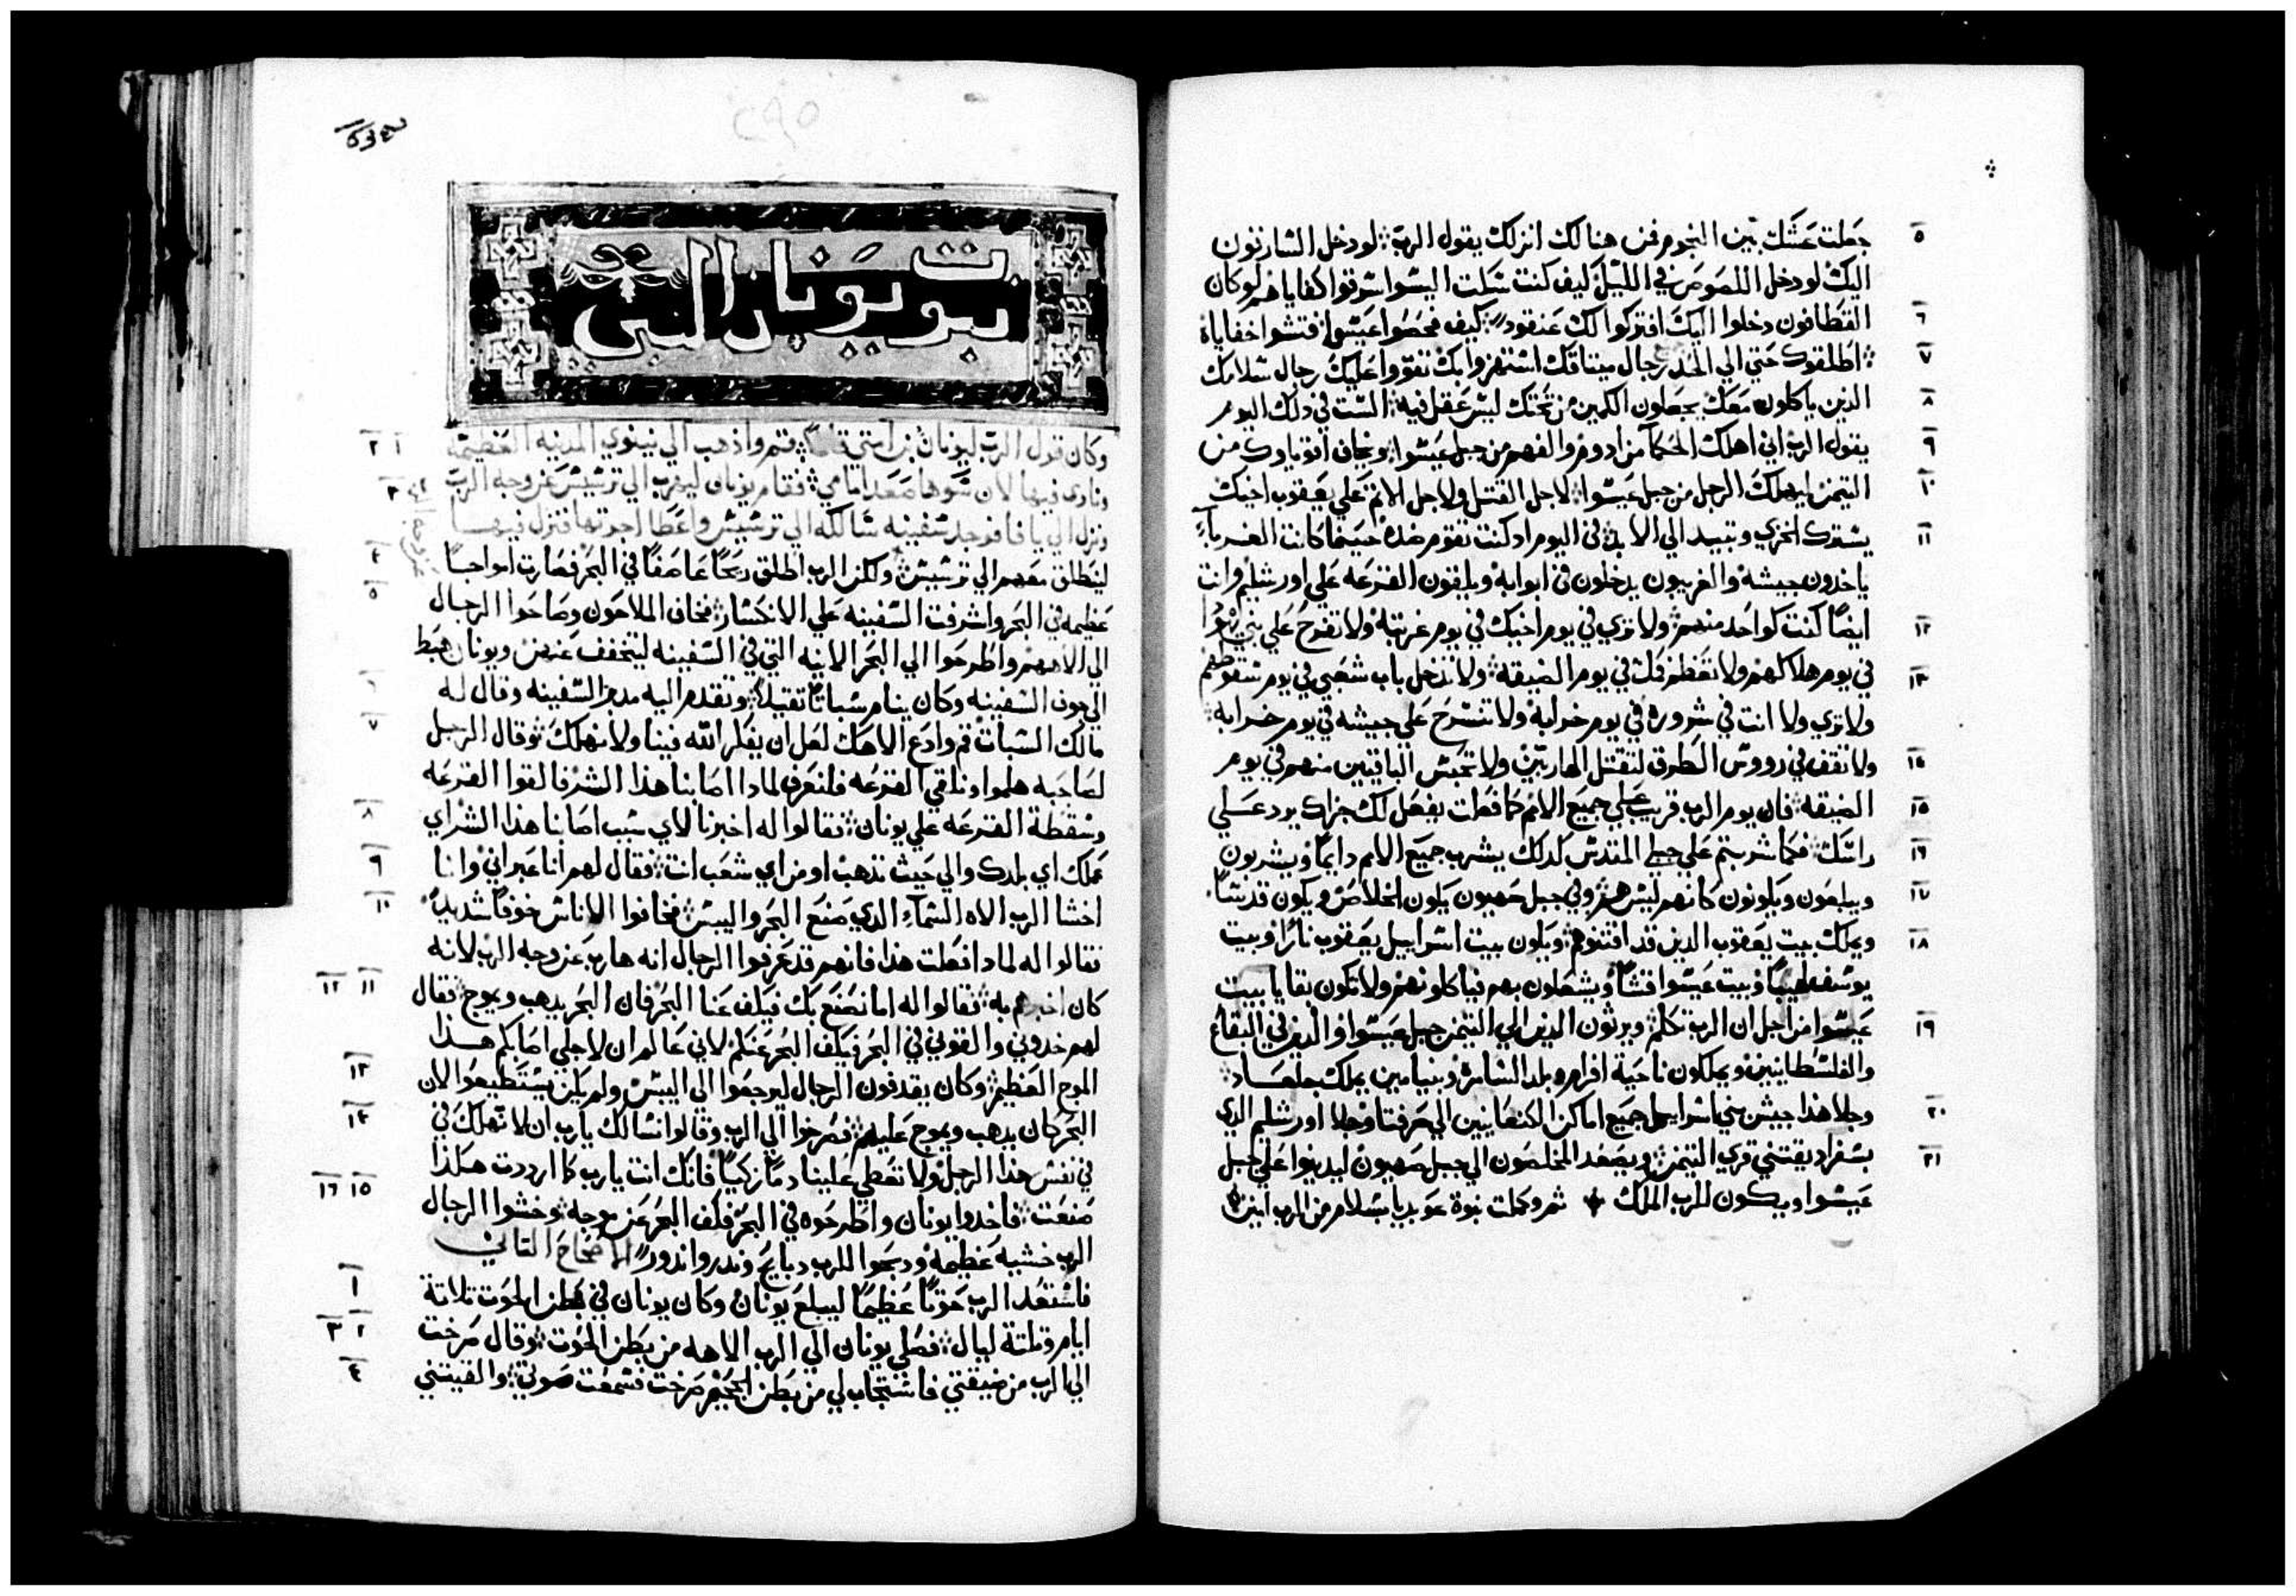 جعلت عشك بين النجوم فمن هنالك انزلك يقول الرب لو دخل السارقون
اليك لو دخل اللصوص في الليل كيف كنت سكت اليسوا سرقوا كفاياهم لو كان
القطافون دخلوا اليك افتركوا لك عنقود كيف فحصوا عيسوا فتشوا خفاياه
اطلقوك حتي الي الحد رجال ميثاقك استهزوا بك تقووا عليك رجال سلامك
الدين ياكلون معك يجعلون الكمين من تحتك ليس عقل فيه الست في دلك اليوم
يقول الرب اني اهلك الحكما من ادوم والفهم من جبل عيسوا ويخاف اقوياوك من
التيمن ليهلك الرجل من جبل عيسوا لاجل القتل ولاجل الاثم علي يعقوب اخيك
يسترك الخزي وتبيد الي الابد في اليوم اد كنت تقوم ضده حينما كانت الغرباء
ياخدون جيشه والغريبون يدخلون في ابوابه ويلقون القرعه علي اورشليم وانت
ايضا كنت كواحد منهم ولا تري في يوم اخيك في يوم غربته ولا تفرح علي بني يهودا
في يوم هلاكهم ولا تعظم فمك في يوم الضيقه ولا تدخل باب شعبي في يوم سقوطهم
ولا تري ولا انت في شروره في يوم خرابه ولا تسرح علي جيشه في يوم خرابه
ولا تقف في رووس الطرق لتقتل الهاربين ولا تحبس الباقيين منهم في يوم
الضيقه فان يوم الرب قريب علي جميع الامم كما فعلت يفعل لك جزاك يرد علي
راسك فكما شربتم علي جبلي المقدس كدلك يشرب جميع الامم دايما ويشربون
ويبلعون ويكونون كانهم ليس هم وفي جبل صهيون يكون الخلاص ويكون قدسا
ويملك بيت يعقوب الدين قد اقتنوهم ويكون بيت اسراييل يعقوب نارا وبيت
يوسف لهيبا وبيت عيسوا قشا ويشعلون بهم فياكلونهم ولا تكون بقايا بيت
عيسوا من اجل ان الرب تكلم ويرثون الدين الي التيمن جبل عيسوا والدين في البقاع
والفلسطانيين ويملكون ناحية افرام وبلد السامرة وبنيامين يملك جلعاد
وجلا هدا جيش بني اسراييل جميع اماكن الكنعانيين الي صرفتا وجلا اورشليم الدي
بسفراد يقتني قري التيمن ويصعد المخلصون الي جبل صهيون ليدينوا علي جبل
عيسوا ويكون للرب الملك تم وكملت نبوة عوبديا بسلام من الرب امين
٥
٦
٧
٨
٩
١٠
١١
١٢
١٣
١٤
١٥
١٦
١٧
١٨
١٩
٢٠
٢١
٢٩٥
نبوة يونان النبي
وكان قول الرب ليونان بن امتي قايلا قم واذهب الي نينوي المدينه العظيمه
ونادي فيها لان سوها صعد امامي فقام يونان ليهرب الي ترشيش عن وجه الرب
ونزل الي يافا فوجد سفينه سالكه الي ترشيش واعطا اجرتها فنزل فيها
لينطلق معهم الي ترشيش ولكن الرب اطلق ريحا عاصفا في البحر فصارت امواجا
عظيمه في البحر واشرفت السفينه علي الانكسار فخاف الملاحون وصاحوا الرجال
الي الاههم واطرحوا الي البحر الانيه التي في السفينه ليتخفف عنهم ويونان هبط
الي جوف السفينه وكان ينام سباتا تقيلا وتقدم اليه مدبر السفينه وقال له
مالك السبات قم وادع الاهك لعل ان يفكر الله فينا ولا نهلك وقال الرجل
لصاحبه هلموا ونلقي القرعه فلنعرف لمادا اصابنا هذا الشر فالقوا القرعه
وسقطة القرعه علي يونان فقالوا له اخبرنا لاي سبب اصابنا هذا الشر اي
عملك اي بلدك والي حيث تدهب او من اي شعب انت فقال لهم انا عبراني وانا
اخشا الرب الاه السماء الدي صنع البحر واليبس فخافوا الاناس خوفا شديدا
فقالوا له لمادا فعلت هذا فانهم قد عرفوا الرجال انه هارب عن وجه الرب لانه
كان اخبرهم به فقالوا له اما نصنع بك فيكف عنا البحر فان البحر يدهب ويموج فقال
لهم خدوني والقوني في البحر فيكف البحر عنكم لاني عالم ان لاجلي اصابكم هذا
الموج العظيم وكان يقدفون الرجال ليرجعوا الي اليبس ولم يكن يستطيعوا لان
البحر كان يدهب ويموج عليهم فصرخوا الي الرب وقالوا نسالك يارب ان لا تهلك في
في نفس هدا الرجل ولا تعطي علينا دما زكيا فانك انت يارب كما ارددت هكذا
صنعت فاخدوا يونان واطرحوه في البحر فكف البحر عن موجه وخشوا الرجال
الرب خشيه عظيمه ودبحوا للرب دبايح وندروا ندورا الاصحاح التاني
فاستعد الرب حوتا عظيما ليبلع يونان وكان يونان في بطن الحوت تلاتة
ايام وتلتة ليال فصلي يونان الي الرب الاهه من بطن الحوت وقال صرخت
الي الرب من ضيقتي فاستجاب لي من بطن الجحيم صرخت فسمعت صوتي والقيتني
١ ٢
٣
٤
٥
٦
٧
٨
٩
١٠
١١ ١٢
١٣
١٤
١٥ ١٦
١
٢ ٣
٤